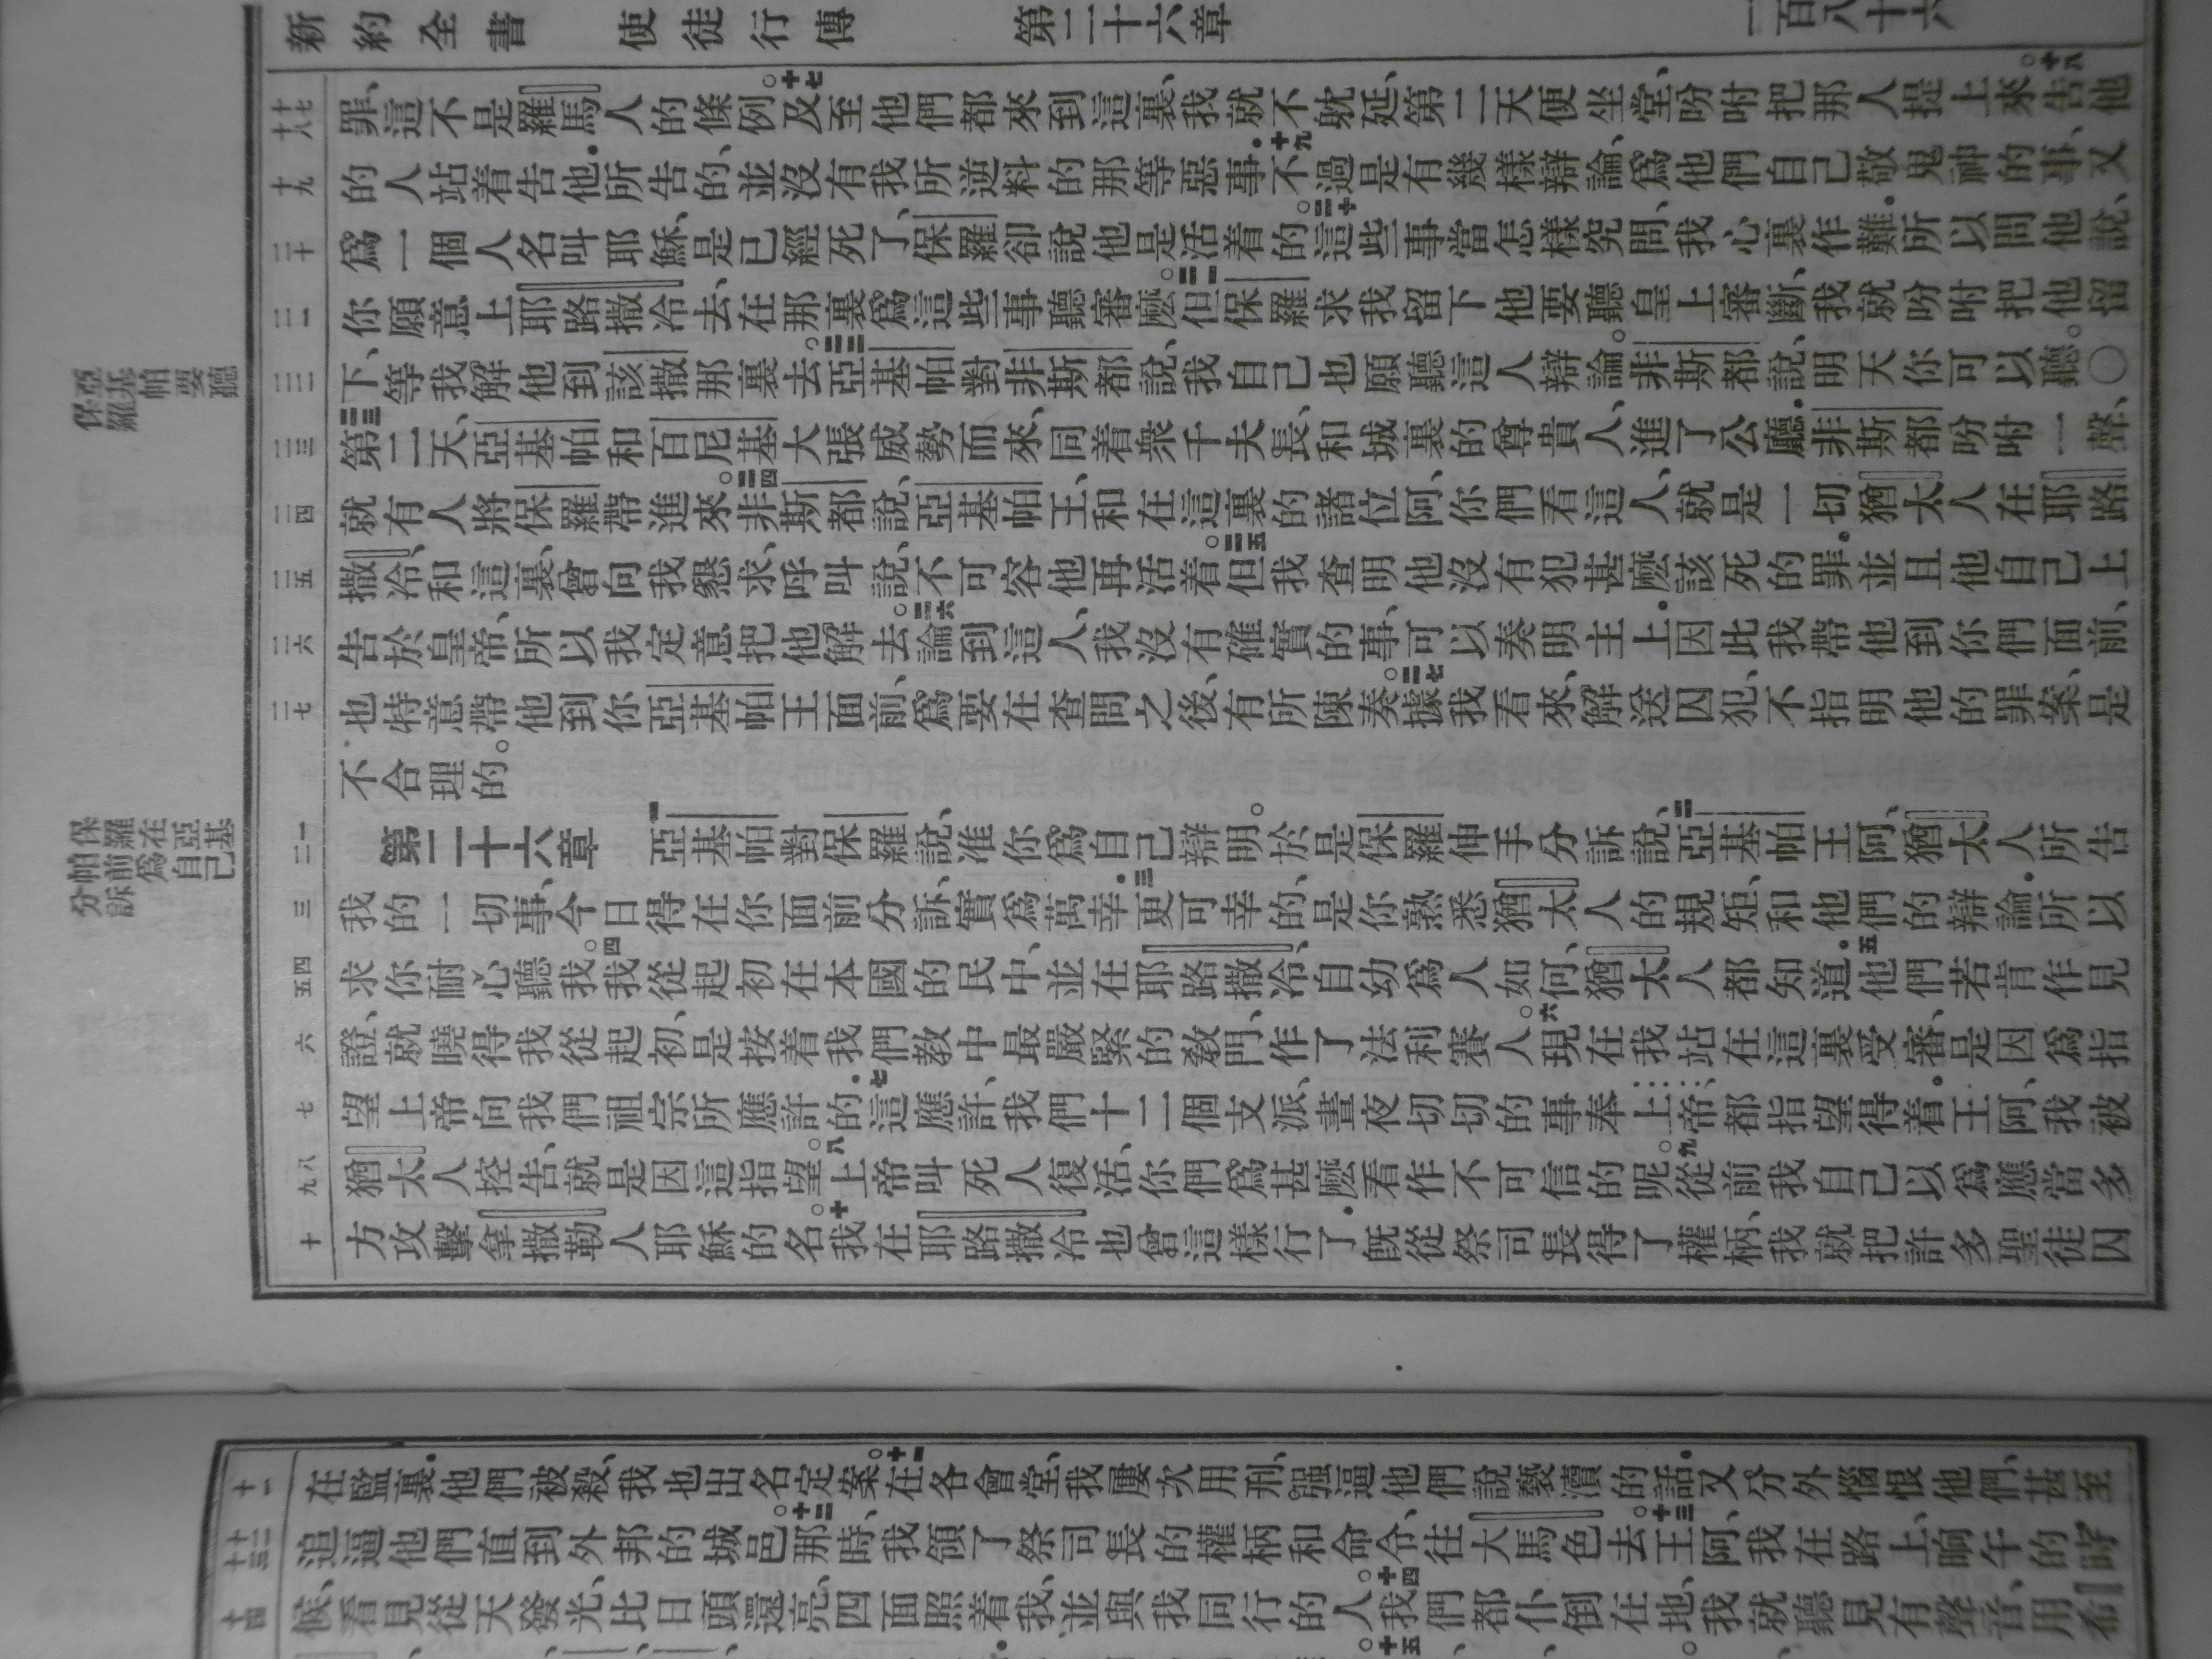 新約全書 使徒行傳 第二十六章 一百八十六
十七 十八
罪、這不是羅馬人的條例。十七及至他們都來到這裏、我就不躭延、第二天便坐堂、吩咐把那人提上來。十八告他
十九
的人站着告他．所告的、並沒有我所逆料的那等惡事．十九不過是有幾樣辯論、爲他們自己敬鬼神的事、又
二十
爲一個人名叫耶穌、是已經死了、保羅卻說他是活着的。二十這些事當怎樣究問、我心裏作難．所以問他說、
二一
你願意上耶路撒冷去、在那裏爲這些事聽審麽。二一但保羅求我留下他、要聽皇上審斷、我就吩咐把他留
二二
下、等我解他到該撒那裏去。二二亞基帕對非斯都說、我自己也願聽這人辯論。非斯都說、明天你可以聽。○
二三
二三第二天、亞基帕和百尼基大張威勢而來、同着衆千夫長、和城裏的尊貴人、進了公廳．非斯都吩咐一聲、
二四
就有人將保羅帶進來。二四非斯都說、亞基帕王、和在這裏的諸位阿、你們看這人、就是一切猶太人在耶路
二五
撒冷、和這裏、曾向我懇求、呼叫說、不可容他再活着。二五但我查明他沒有犯甚麽該死的罪．並且他自己上
二六
告於皇帝、所以我定意把他解去。二六論到這人、我沒有確實的事、可以奏明主上．因此我帶他到你們面前、
二七
也特意帶他到你亞基帕王面前、爲要在查問之後、有所陳奏。二七據我看來、解送囚犯、不指明他的罪案、是
不合理的。
保羅
亞基帕要聽
一 二
第二十六章 一亞基帕對保羅說、准你爲自己辯明。於是保羅伸手分訴說、二亞基帕王阿、猶太人所告
三
我的一切事、今日得在你面前分訴、實爲萬幸．三更可幸的、是你熟悉猶太人的規矩、和他們的辯論．所以
四 五
求你耐心聽我。四我從起初在本國的民中、並在耶路撒冷、自幼爲人如何、猶太人都知道．五他們若肯作見
六
證、就曉得我從起初、是按着我們教中最嚴緊的教門、作了法利賽人。六現在我站在這裏受審、是因爲指
七
望上帝向我們祖宗所應許的．七這應許、我們十二個支派、晝夜切切的事奉上帝、都指望得着．王阿、我被
八 九
猶太人控告、就是因這指望。八上帝叫死人復活、你們爲甚麽看作不可信的呢。九從前我自己以爲應當多
十
方攻擊拿撒勒人耶穌的名。十我在耶路撒冷也曾這樣行了．旣從祭司長得了權柄、我就把許多聖徒囚
保羅在亞基
帕前爲自己
分訴
十一
在監裏．他們被殺、我也出名定案。十一在各會堂、我屢次用刑、强逼他們說褻瀆的話．又分外惱恨他們、甚至
十二 十三
追逼他們直到外邦的城邑。十二那時、我領了祭司長的權柄和命令、往大馬色去。十三王阿、我在路上、晌午的時
十四
候、看見從天發光、比日頭還亮、四面照着我、並與我同行的人。十四我們都仆倒在地、我就聽見有聲音、用希